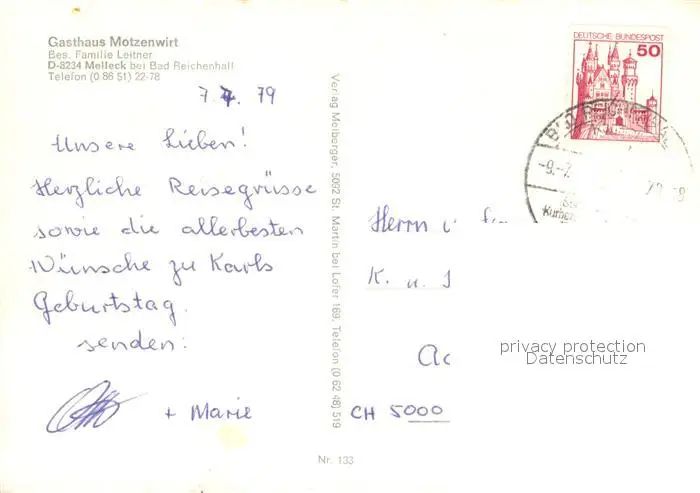 Gasthaus Motzenwirt
Bes. Familie Leitner
D-8234 Melleck bei Bad Reichenhall
Telefon (0 86 51) 22-78
7. 7. 79
Unsere Lieben!
Herzliche Reisegrüsse
sowie die allerbesten
Wünsche zu Karls
Geburtstag.
senden:
+ Marie
Verlag Melberger, 5092 St. Martin bei Lofer 169, Telefon (0 62 48) 519
Nr. 133
DEUTSCHE BUNDESPOST
50
-9.-7.
Herrn u
K. u.
privacy protection
Datenschutz
CH 5000